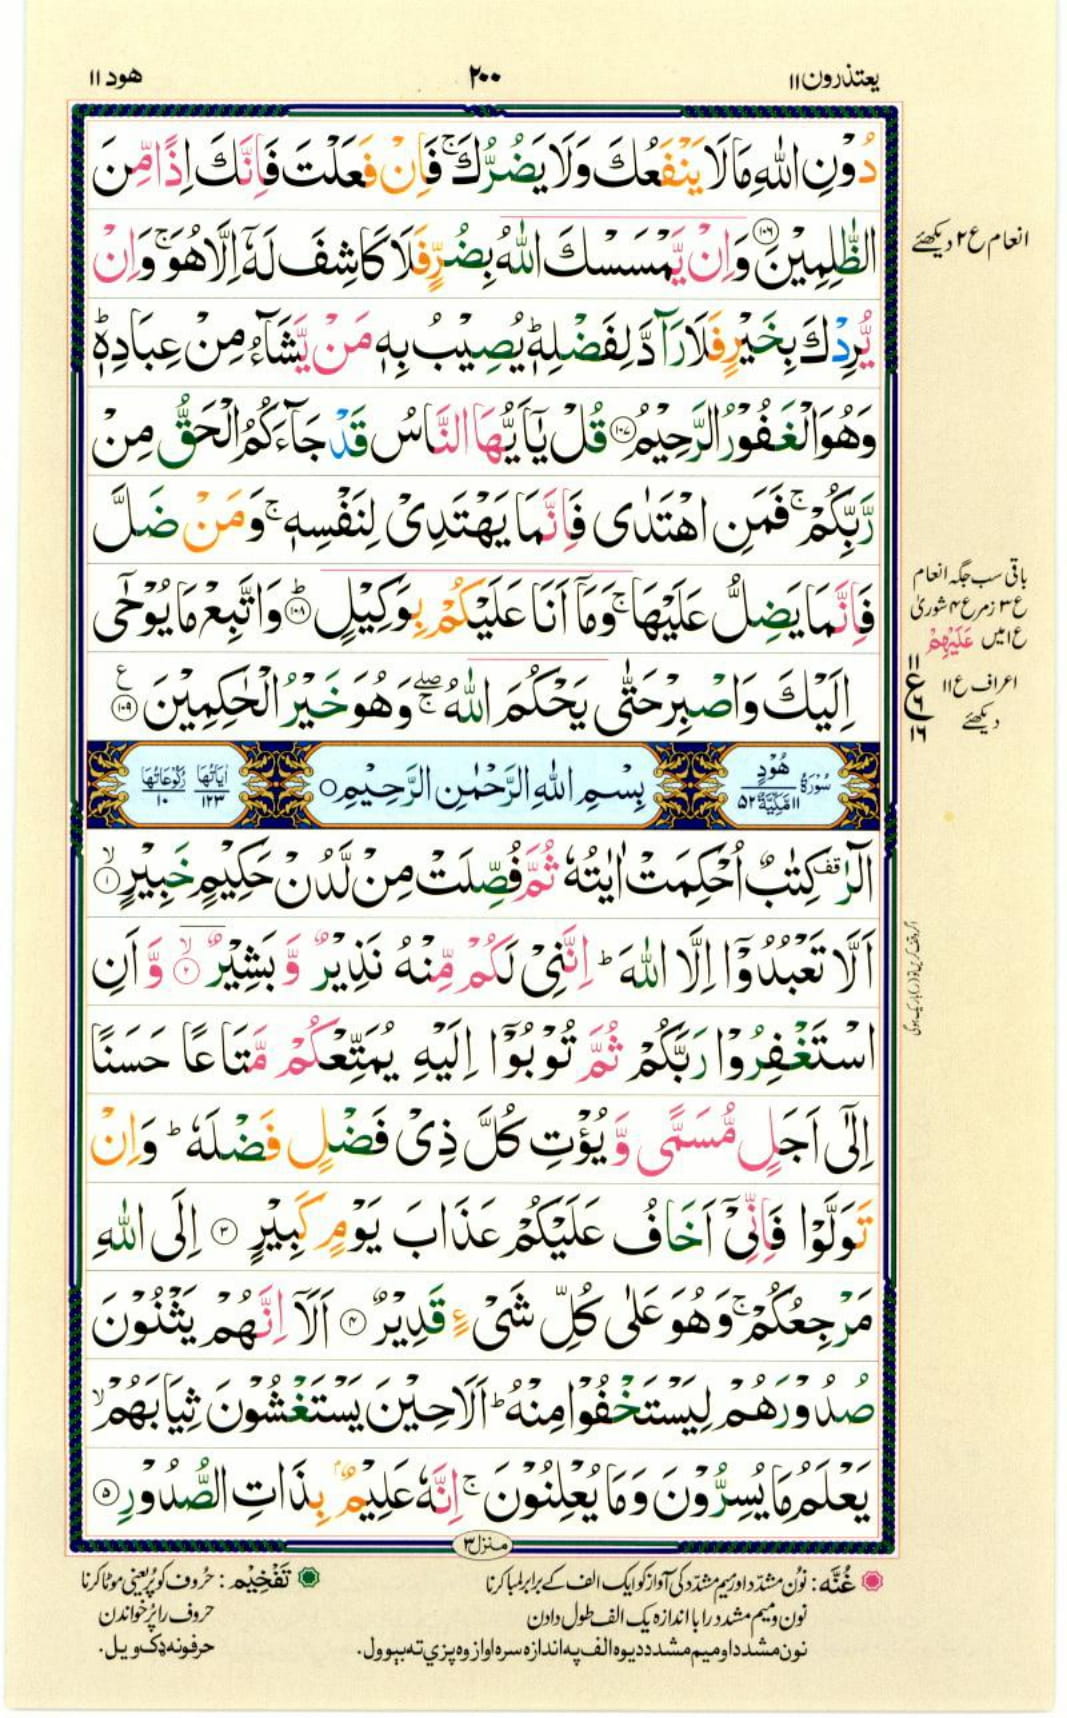 یعتذرون ۱۱
۲۰۰
هود ۱۱
دُوۡنِ اللّٰهِ مَا لَا یَنۡفَعُكَ وَلَا یَضُرُّكَ ۚ فَاِنۡ فَعَلۡتَ فَاِنَّكَ اِذًا مِّنَ
الظّٰلِمِیۡنَ ﴿۱۰۶﴾ وَاِنۡ یَّمۡسَسۡكَ اللّٰهُ بِضُرٍّ فَلَا كَاشِفَ لَهٗۤ اِلَّا هُوَ ۚ وَاِنۡ
یُّرِدۡكَ بِخَیۡرٍ فَلَا رَآدَّ لِفَضۡلِهٖ ؕ یُصِیۡبُ بِهٖ مَنۡ یَّشَآءُ مِنۡ عِبَادِهٖ ؕ
وَهُوَ الۡغَفُوۡرُ الرَّحِیۡمُ ﴿۱۰۷﴾ قُلۡ یٰۤاَیُّهَا النَّاسُ قَدۡ جَآءَكُمُ الۡحَقُّ مِنۡ
رَّبِّكُمۡ ۚ فَمَنِ اهۡتَدٰی فَاِنَّمَا یَهۡتَدِیۡ لِنَفۡسِهٖ ۚ وَمَنۡ ضَلَّ
فَاِنَّمَا یَضِلُّ عَلَیۡهَا ۚ وَمَاۤ اَنَا عَلَیۡكُمۡ بِوَكِیۡلٍ ﴿۱۰۸﴾ ؕ وَاتَّبِعۡ مَا یُوۡحٰۤی
اِلَیۡكَ وَاصۡبِرۡ حَتّٰی یَحۡكُمَ اللّٰهُ ۚۖ وَهُوَ خَیۡرُ الۡحٰكِمِیۡنَ ﴿۱۰۹﴾ ع
انعام ع ۲ دیکھئے
باقی سب جگہ انعام
ع ۳ زمر ع ۴ شوریٰ
ع ۱ میں عَلَیۡهِمۡ
اعراف ع ۱۱
دیکھئے
۱۱
ع
۶
۱۶
سُوۡرَةُ هُوۡدٍ ۱۱ مَكِّیَّةٌ ۵۲
بِسۡمِ اللّٰهِ الرَّحۡمٰنِ الرَّحِیۡمِ ○
اٰیَاتُهَا ۱۲۳ رُكُوۡعَاتُهَا ۱۰
الٓرٰ ۟ كِتٰبٌ اُحۡكِمَتۡ اٰیٰتُهٗ ثُمَّ فُصِّلَتۡ مِنۡ لَّدُنۡ حَكِیۡمٍ خَبِیۡرٍ ﴿۱﴾ ۙ
اَلَّا تَعۡبُدُوۡۤا اِلَّا اللّٰهَ ؕ اِنَّنِیۡ لَكُمۡ مِّنۡهُ نَذِیۡرٌ وَّ بَشِیۡرٌ ﴿۲﴾ ۙ وَّ اَنِ
اسۡتَغۡفِرُوۡا رَبَّكُمۡ ثُمَّ تُوۡبُوۡۤا اِلَیۡهِ یُمَتِّعۡكُمۡ مَّتَاعًا حَسَنًا
اِلٰۤی اَجَلٍ مُّسَمًّی وَّ یُؤۡتِ كُلَّ ذِیۡ فَضۡلٍ فَضۡلَهٗ ؕ وَاِنۡ
تَوَلَّوۡا فَاِنِّیۡۤ اَخَافُ عَلَیۡكُمۡ عَذَابَ یَوۡمٍ كَبِیۡرٍ ﴿۳﴾ اِلَی اللّٰهِ
مَرۡجِعُكُمۡ ۚ وَهُوَ عَلٰی كُلِّ شَیۡءٍ قَدِیۡرٌ ﴿۴﴾ اَلَاۤ اِنَّهُمۡ یَثۡنُوۡنَ
صُدُوۡرَهُمۡ لِیَسۡتَخۡفُوۡا مِنۡهُ ؕ اَلَا حِیۡنَ یَسۡتَغۡشُوۡنَ ثِیَابَهُمۡ ۙ
یَعۡلَمُ مَا یُسِرُّوۡنَ وَمَا یُعۡلِنُوۡنَ ۚ اِنَّهٗ عَلِیۡمٌۢ بِذَاتِ الصُّدُوۡرِ ﴿۵﴾
منزل ۳
غُنَّه : نون مشدّد اور میم مشدّد کی آواز کو ایک الف کے برابر لمبا کرنا
نون و میم مشدد را با اندازه یک الف طول دادن
نون مشدد او میم مشدد د یوه الف په اندازه سره اواز وه پزې ته بیوول.
تَفۡخِیۡم : حُروف کو پُر یعنی موٹا کرنا
حروف را پُر خواندن
حرفونه ډک ویل.